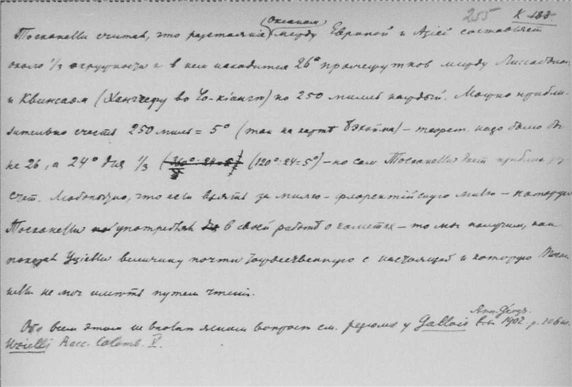 255 К 188
Океаном
Тосканелли считал, что расстояние между Европой и Азией составляет
около 1/3 окружности и в нем находится 26 промежутков между Лиссабоном
и Квинсаем (Ханчжеу во Чо-кiангт) по 250 миль каждый. Можно прибли-
зительно счесть 250 миль = 5° (так на карте Бэхайма) – теорет. надо было бы
не 26, а 24 для 1/3 (120°:24=5°) – но сам Тосканелли дает приближ.
счет. Любопытно, что если взять за милю – флорентийскую милю – которую
Тосканелли употреблял в своей работе о кометах – то мы получим, как
показал Уциелли величину почти тождественную с настоящей и которую Тоска-
нелли не мог иметь путем
Обо всем этом не вполне ясном вопросе см. резюме у Gallois Ann. Géogr. 1902
Uzielli Racc. Colomb. V.